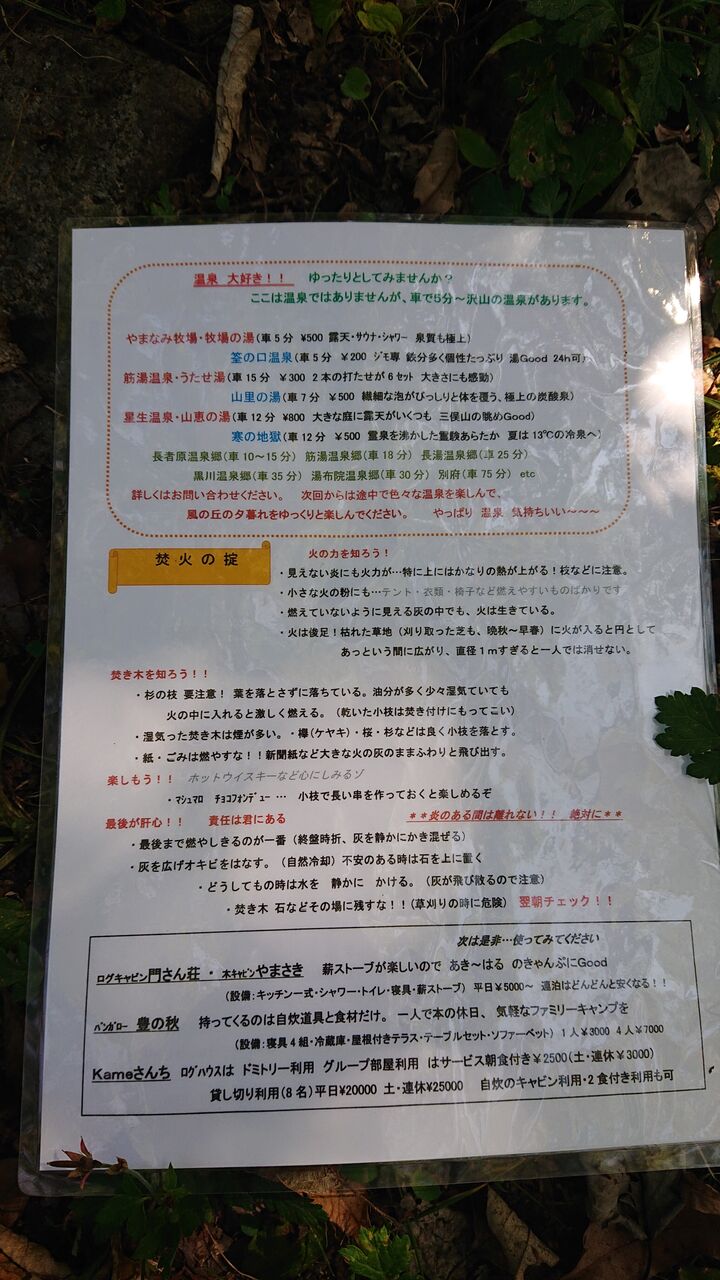 温泉 大好き!! ゆったりとしてみませんか?
ここは温泉ではありませんが、車で5分~沢山の温泉があります。
やまなみ牧場・牧場の湯(車5分 ¥500 露天・サウナ・シャワー 泉質も極上)
筌の口温泉(車5分 ¥200 ジモ専 鉄分多く個性たっぷり 湯Good 24h可)
筋湯温泉・うたせ湯(車15分 ¥300 2本の打たせが6セット 大きさにも感動)
山里の湯(車7分 ¥500 繊細な泡がびっしりと体を覆う、極上の炭酸泉)
星生温泉・山恵の湯(車12分 ¥800 大きな庭に露天がいくつも 三俣山の眺めGood)
寒の地獄(車12分 ¥500 霊泉を沸かした霊験あらたか 夏は13℃の冷泉へ)
長者原温泉郷(車10~15分) 筋湯温泉郷(車18分) 長湯温泉郷(車25分)
黒川温泉郷(車35分) 湯布院温泉郷(車30分) 別府(車75分) etc
詳しくはお問い合わせください。 次回からは途中で色々な温泉を楽しんで、
風の丘の夕暮れをゆっくりと楽しんでください。 やっぱり 温泉 気持ちいい~~~
焚火の掟
火の力を知ろう!
・見えない炎にも火力が…特に上にはかなりの熱が上がる!枝などに注意。
・小さな火の粉にも…テント・衣類・椅子など燃えやすいものばかりです
・燃えていないように見える灰の中でも、火は生きている。
・火は俊足!枯れた草地(刈り取った芝も、晩秋~早春)に火が入ると円として
あっという間に広がり、直径1mすぎると一人では消せない。
焚き木を知ろう!!
・杉の枝 要注意! 葉を落とさずに落ちている。油分が多く少々湿気ていても
火の中に入れると激しく燃える。(乾いた小枝は焚き付けにもってこい)
・湿気った焚き木は煙が多い。・欅(ケヤキ)・桜・杉などは良く小枝を落とす。
・紙・ごみは燃やすな!!新聞紙など大きな火の灰のままふわりと飛び出す。
楽しもう!! ホットウイスキーなど心にしみるゾ
・マシュマロ チョコフォンデュー… 小枝で長い串を作っておくと楽しめるぞ
最後が肝心!! 責任は君にある **炎のある間は離れない!! 絶対に**
・最後まで燃やしきるのが一番(終盤時折、灰を静かにかき混ぜる)
・灰を広げオキビをはなす。(自然冷却)不安のある時は石を上に置く
・どうしてもの時は水を 静かに かける。(灰が飛び散るので注意)
・焚き木 石などその場に残すな!!(草刈りの時に危険) 翌朝チェック!!
次は是非…使ってみてください
ログキャビン門さん荘 ・ 木キャビンやまさき 薪ストーブが楽しいので あき~はる のきゃんぷにGood
(設備:キッチン一式・シャワー・トイレ・寝具・薪ストーブ) 平日¥5000~ 連泊はどんどんと安くなる!!
バンガロー 豊の秋 持ってくるのは自炊道具と食材だけ。 一人で本の休日、気軽なファミリーキャンプを
(設備:寝具4組・冷蔵庫・屋根付きテラス・テーブルセット・ソファーベット) 1人¥3000 4人¥7000
Kameさんち ログハウスは ドミトリー利用 グループ部屋利用 はサービス朝食付き¥2500(土・連休¥3000)
貸し切り利用(8名)平日¥20000 土・連休¥25000 自炊のキャビン利用・2食付き利用も可